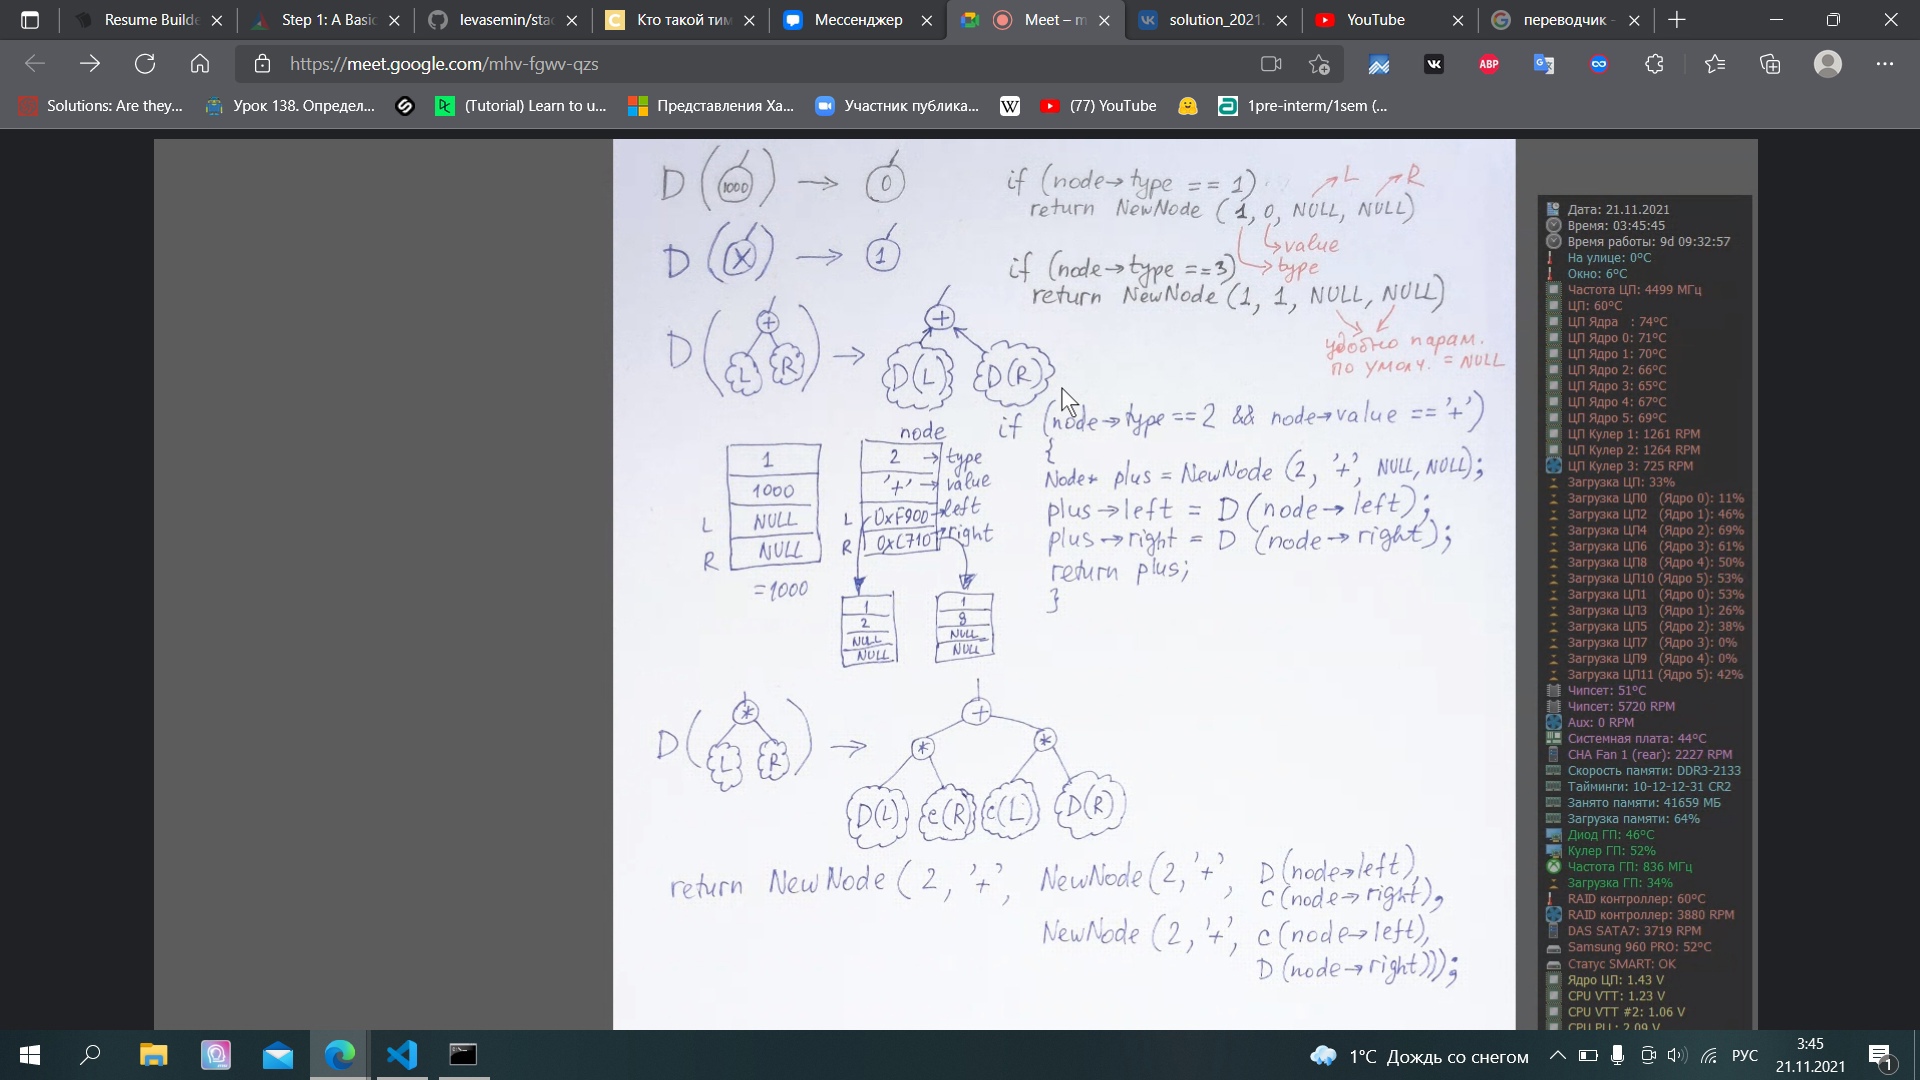 Resume Builde
Step 1: A Basic
levasemin/stac
Кто такой тим
Мессенджер
Meet – m
solution_2021.
YouTube
переводчик -
https://meet.google.com/mhv-fgwv-qzs
Solutions: Are they...
Урок 138. Определ...
(Tutorial) Learn to u...
Представления Ха...
Участник публика...
W
(77) YouTube
1pre-interm/1sem (...
D ( 1000 ) → 0
if (node→type == 1)
→ L → R
return NewNode (1, 0, NULL, NULL)
→ value
→ type
D ( X ) → 1
if (node→type == 3)
return NewNode (1, 1, NULL, NULL)
удобно парам.
по умолч. = NULL
D ( + L R ) → + D(L) D(R)
if (node→type == 2 && node→value == '+')
{
Node* plus = NewNode (2, '+', NULL, NULL);
plus→left = D (node→left);
plus→right = D (node→right);
return plus;
}
1
1000
L NULL
R NULL
= 1000
node
2 → type
'+' → value
L 0xF900 → left
R 0xC710 → right
1
2
NULL
NULL
1
8
NULL
NULL
D ( * L R ) → + * * D(L) c(R) c(L) D(R)
return NewNode (2, '+', NewNode (2, '+', D (node→left),
C (node→right),
NewNode (2, '+', c (node→left),
D (node→right)));
Дата: 21.11.2021
Время: 03:45:45
Время работы: 9d 09:32:57
На улице: 0°C
Окно: 6°C
Частота ЦП: 4499 МГц
ЦП: 60°C
ЦП Ядра : 74°C
ЦП Ядро 0: 71°C
ЦП Ядро 1: 70°C
ЦП Ядро 2: 66°C
ЦП Ядро 3: 65°C
ЦП Ядро 4: 67°C
ЦП Ядро 5: 69°C
ЦП Кулер 1: 1261 RPM
ЦП Кулер 2: 1264 RPM
ЦП Кулер 3: 725 RPM
Загрузка ЦП: 33%
Загрузка ЦП0 (Ядро 0): 11%
Загрузка ЦП2 (Ядро 1): 46%
Загрузка ЦП4 (Ядро 2): 69%
Загрузка ЦП6 (Ядро 3): 61%
Загрузка ЦП8 (Ядро 4): 50%
Загрузка ЦП10 (Ядро 5): 53%
Загрузка ЦП1 (Ядро 0): 53%
Загрузка ЦП3 (Ядро 1): 26%
Загрузка ЦП5 (Ядро 2): 38%
Загрузка ЦП7 (Ядро 3): 0%
Загрузка ЦП9 (Ядро 4): 0%
Загрузка ЦП11 (Ядро 5): 42%
Чипсет: 51°C
Чипсет: 5720 RPM
Aux: 0 RPM
Системная плата: 44°C
CHA Fan 1 (rear): 2227 RPM
Скорость памяти: DDR3-2133
Тайминги: 10-12-12-31 CR2
Занято памяти: 41659 МБ
Загрузка памяти: 64%
Диод ГП: 46°C
Кулер ГП: 52%
Частота ГП: 836 МГц
Загрузка ГП: 34%
RAID контроллер: 60°C
RAID контроллер: 3880 RPM
DAS SATA7: 3719 RPM
Samsung 960 PRO: 52°C
Статус SMART: OK
Ядро ЦП: 1.43 V
CPU VTT: 1.23 V
CPU VTT #2: 1.06 V
CPU PLL: 2.09 V
1°C Дождь со снегом
РУС
3:45
21.11.2021
1